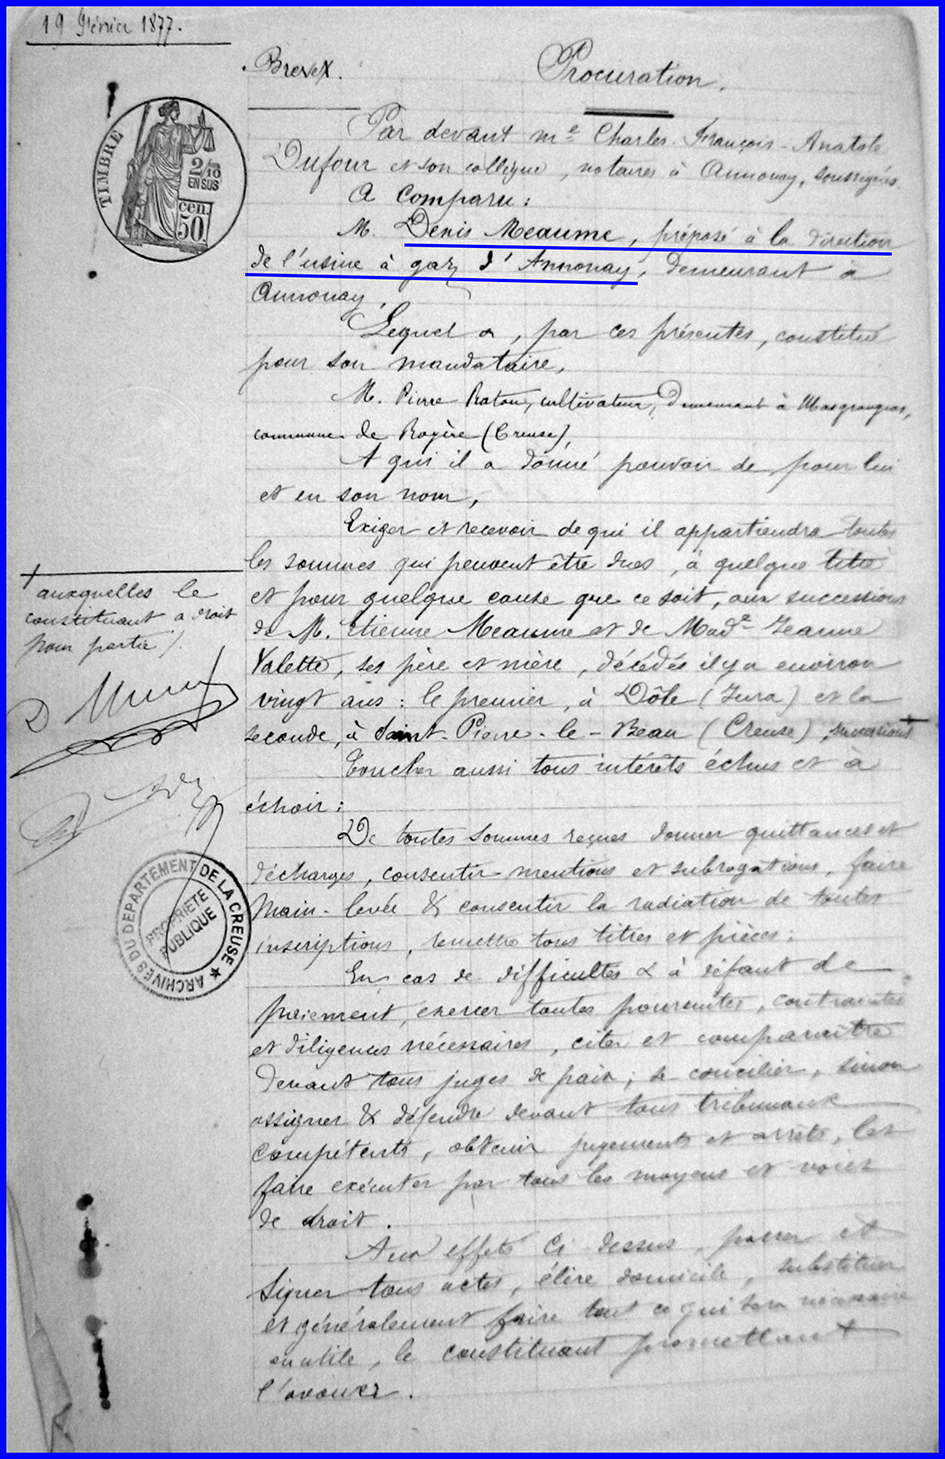 19 février 1877.
Brevet.
Procuration.
TIMBRE
2/10
EN SUS
cen.
50
Par devant me Charles-François-Anatole
Dufour et son collègue, notaires à Annonay, soussignés.
A comparu:
M. Denis Meaume, préposé à la direction
de l'usine à gaz d'Annonay, demeurant à
Annonay,
Lequel a, par ces présentes, constitué
pour son mandataire,
M. Pierre Ratou, cultivateur, demeurant à Masgrangeas,
commune de Royère (Creuse),
A qui il a donné pouvoir de, pour lui
et en son nom,
Exiger et recevoir de qui il appartiendra toutes
les sommes qui peuvent être dues, à quelque titre
et pour quelque cause que ce soit, aux successions
de M. Etienne Meaume et de Made Jeanne
Valette, ses père et mère, décédés il y a environ
vingt ans: le premier, à Dôle (Jura) et la
seconde, à Saint-Pierre-le-Beau (Creuse), successions +
+ auxquelles le
constituant a droit
pour partie /.
D Meaume
Toucher aussi tous intérêts échus et à
échoir:
De toutes sommes reçues donner quittances et
décharges, consentir mentions et subrogations, faire
main-levée & consentir la radiation de toutes
inscriptions, remettre tous titres et pièces;
ARCHIVES DU DEPARTEMENT DE LA CREUSE ★
PROPRIÉTÉ
PUBLIQUE
En cas de difficultés & à défaut de
paiement, exercer toutes poursuites, contraintes
et diligences nécessaires, citer et comparaître
devant tous juges de paix; se concilier, sinon
assigner & défendre devant tous tribunaux
compétents, obtenir jugements et arrêts, les
faire exécuter par tous les moyens et voies
de droit.
Aux effets ci-dessus, passer et
signer tous actes, élire domicile, substituer
et généralement faire tout ce qui sera nécessaire
ou utile, le constituant promettant
l'avouer.